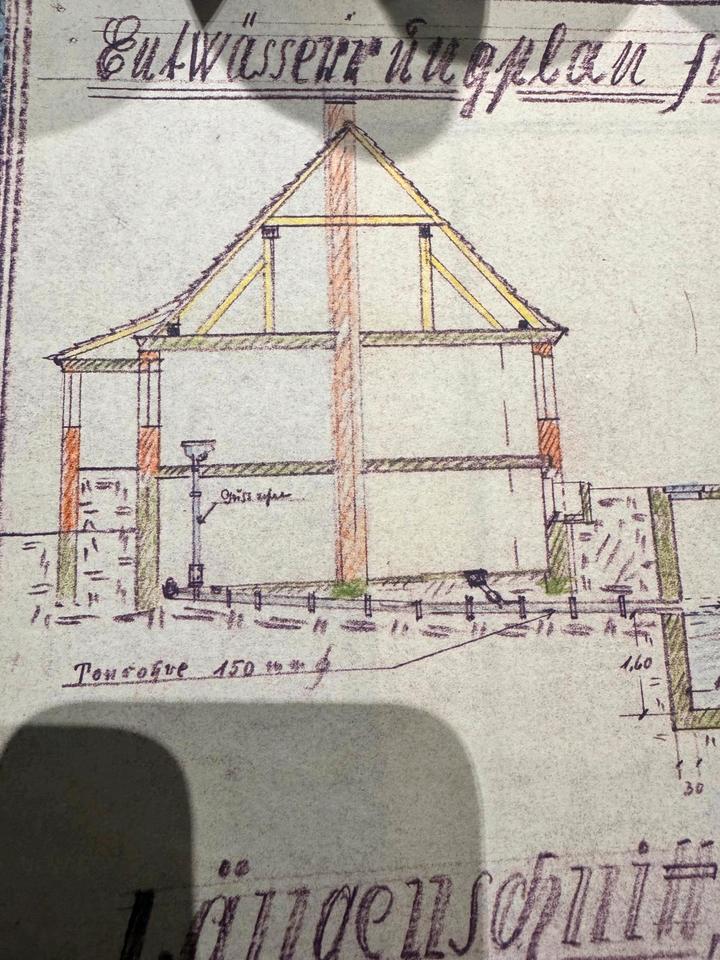 Entwässerungplan fü
Gussrohr
Tonrohre 150 mm ϕ
1,60
30
Längenschnitt